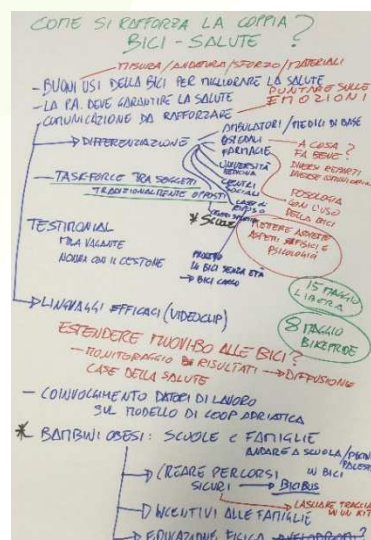 COME SI RAFFORZA LA COPPIA
BICI - SALUTE ?
MISURA/ANDATURA/SFORZO/MATERIALI
- BUONI USI DELLA BICI PER MIGLIORARE LA SALUTE
- LA P.A. DEVE GARANTIRE LA SALUTE
PUNTARE SULLE
EMOZIONI
COMUNICAZIONE DA RAFFORZARE
DIFFERENZIAZIONE
AMBULATORI/MEDICI DI BASE
OSPEDALI
FARMACIE
UNIVERSITÀ
MEDICINA
CENTRI
SOCIALI
CASE DI
RIPOSO
* SCUOLE
A COSA ?
FA BENE ?
DIVERSI REPARTI
DIVERSE
POSOLOGIA
CON L'USO
DELLA BICI
METTERE
ASPETTI FISICI E
PSICOLOGICI
- TASKFORCE TRA SOGGETTI
TRADIZIONALMENTE OPPOSTI
TESTIMONIAL
MRA VAGANTE
NONNA CON IL CESTONE
PROGETTO
IN BICI SENZA ETÀ
BICI CARGO
15 MAGGIO
LIBERA
8 MAGGIO
BIKEPRIDE
LINGUAGGI EFFICACI (VIDEOCLIP)
ESTENDERE MUOVIBO ALLE BICI ?
- MONITORAGGIO DI RISULTATI → DIFFUSIONE
CASE DELLA SALUTE
- COINVOLGIMENTO DATORI DI LAVORO
SUL MODELLO DI COOP ADRIATICA
* BAMBINI OBESI: SCUOLE E FAMIGLIE
ANDARE A SCUOLA/
IN BICI
CREARE PERCORSI
SICURI → BICIBUS
LASCIARE TRACCIA
IN UN KIT
INCENTIVI ALLE FAMIGLIE
EDUCAZIONE FISICA